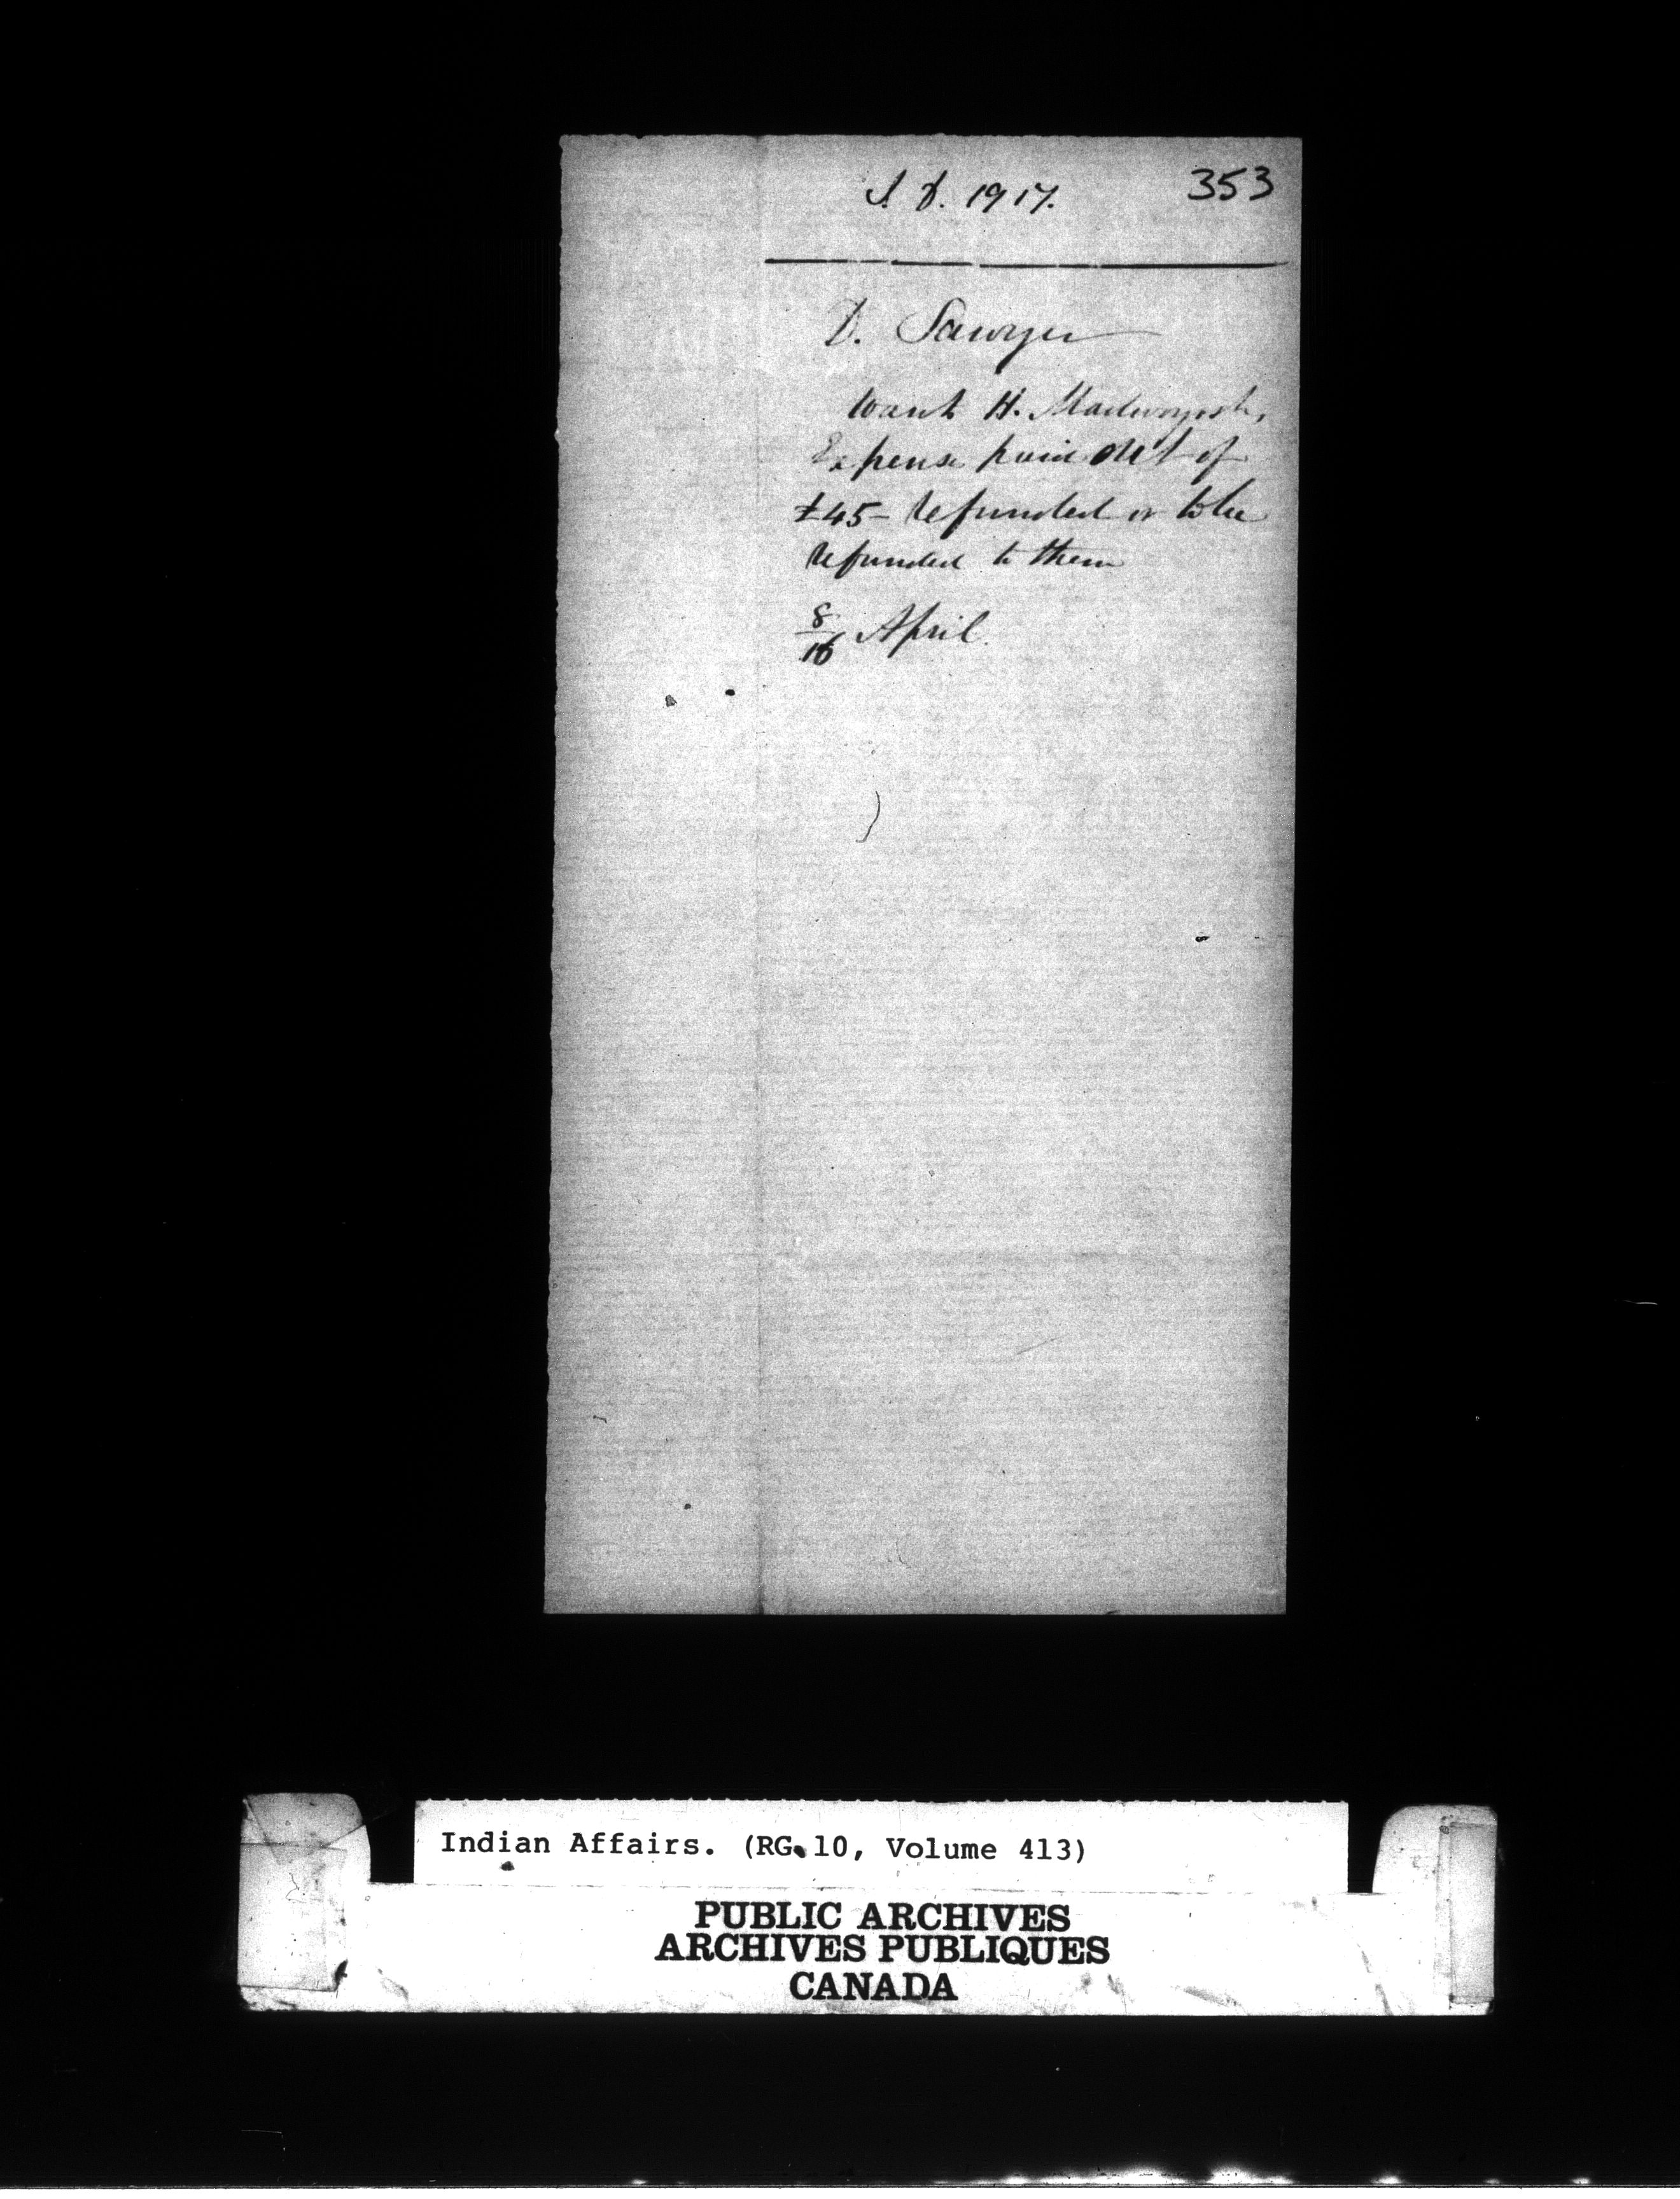 353
I. D. 1917.
D. Sawyer
Want H.
Expense paid out of
£45 - refunded or to be
refunded to them
8/16 April
Indian Affairs. (RG 10, Volume 413)
PUBLIC ARCHIVES
ARCHIVES PUBLIQUES
CANADA